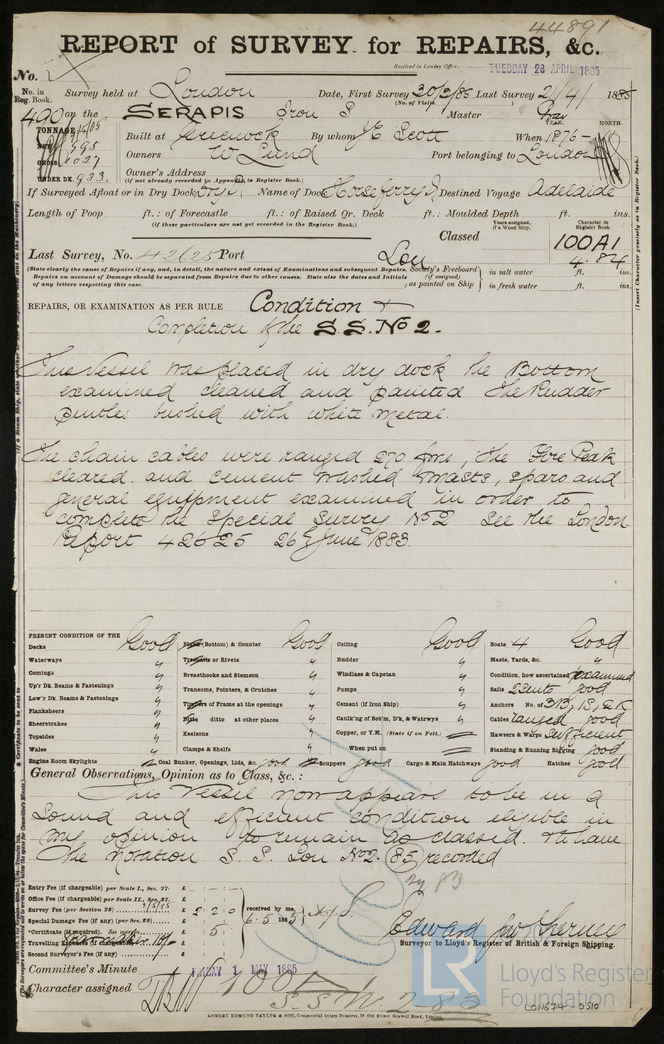 44891
REPORT of SURVEY for REPAIRS, &c.
Received in London Office, TUESDAY 28 APRIL 1885
No.
No. in Reg. Book. Survey held at London Date, First Survey 20/3/85 Last Survey 21/4/ 1885
(No. of Visits )
490 on the SERAPIS Iron S Master
YEAR. MONTH.
TONNAGE Built at Greenock By whom J E Scott When 1876
NET 995
GROSS 1027 Owners W Lund Port belonging to London
UNDER DK. 933. Owners' Address
(If not already recorded in Appendix to Register Book.)
If Surveyed Afloat or in Dry Dock Dry Name of Dock Horseferry Destined Voyage Adelaide
Length of Poop ft.: of Forecastle ft.: of Raised Qr. Deck ft.: Moulded Depth ft. ins.
(If these particulars are not yet recorded in the Register Book.) Years assigned, if a Wood Ship. Character in Register Book.
Classed 100A1
4.84
Last Survey, No. 42625 Port Lon
(State clearly the cause of Repairs if any, and, in detail, the nature and extent of Examinations and subsequent Repairs. Repairs on account of Damage should be separated from Repairs due to other causes. State also the dates and Initials of any letters respecting this case.
Society's Freeboard (if assigned) as painted on Ship in salt water ft. ins.
in fresh water ft. ins.
REPAIRS, OR EXAMINATION AS PER RULE Condition +
Completion of the S.S. No 2.
This Vessel was placed in dry dock the Bottom
examined cleaned and painted the Rudder
pintles bushed with white metal.
The chain cables were ranged 270 fms, the Fore Peak
cleared and cement washed masts, spars and
general equipment examined in order to
complete the Special Survey No 2 See the London
Report 42625 26th June 1883.
PRESENT CONDITION OF THE
Decks Good
Waterways "
Comings "
Up'r Dk. Beams & Fastenings "
Low'r Dk. Beams & Fastenings "
Planksheers "
Sheerstrakes "
Topsides "
Wales "
Engine Room Skylights
Plank (Bottom) & Counter Good
Treenails or Rivets "
Breasthooks and Stemson "
Transoms, Pointers, & Crutches "
Timbers of Frame at the openings "
Ditto ditto at other places "
Keelsons "
Clamps & Shelfs "
Coal Bunker, Openings, Lids, &c. good
Ceiling Good
Rudder "
Windlass & Capstan "
Pumps "
Cement (if Iron Ship) "
Caulk'ng of Bot'm, D'k, & Watrwys "
Copper, or Y.M. (State if on Felt.)
When put on
Scuppers good Cargo & Main Hatchways good
Boats 4 Good
Masts, Yards, &c. "
Condition, how ascertained examined
Sails 2 suits good
Anchors No. of 3B, 1S, 2K
Cables ranged good
Hawsers & Warps Sufficient
Standing & Running Rigging good
Hatches good
General Observations, Opinion as to Class, &c. :
This Vessel now appears to be in a
sound and efficient condition eligible in
my opinion to remain as classed. & to have
the notation S. S. Lon No 2. 85 recorded
Entry Fee (if chargeable) per Scale I., Sec. 27. £ : :
Office Fee (if chargeable) per Scale II., Sec. 27. £ : :
Survey Fee (per Section 28) £ 2 : 2 : 0 received by me,
Special Damage Fee (if any) (per Sec. 28) £ : : 6.5.1885
*Certificate (if required). £ : 5 :
Travelling Expenses (if chargeable)
Second Surveyor's Fee (if any) £ : :
Surveyor to Lloyd's Register of British & Foreign Shipping.
Committee's Minute FRIDAY 1 MAY 1885
Character assigned 100A1
S.S. No 2 83
ROBERT EDMUND TAYLOR & SON, Commercial Steam Printers, 19 Old Street Goswell Road, London.
LR Lloyd's Register Foundation
LON574-0510